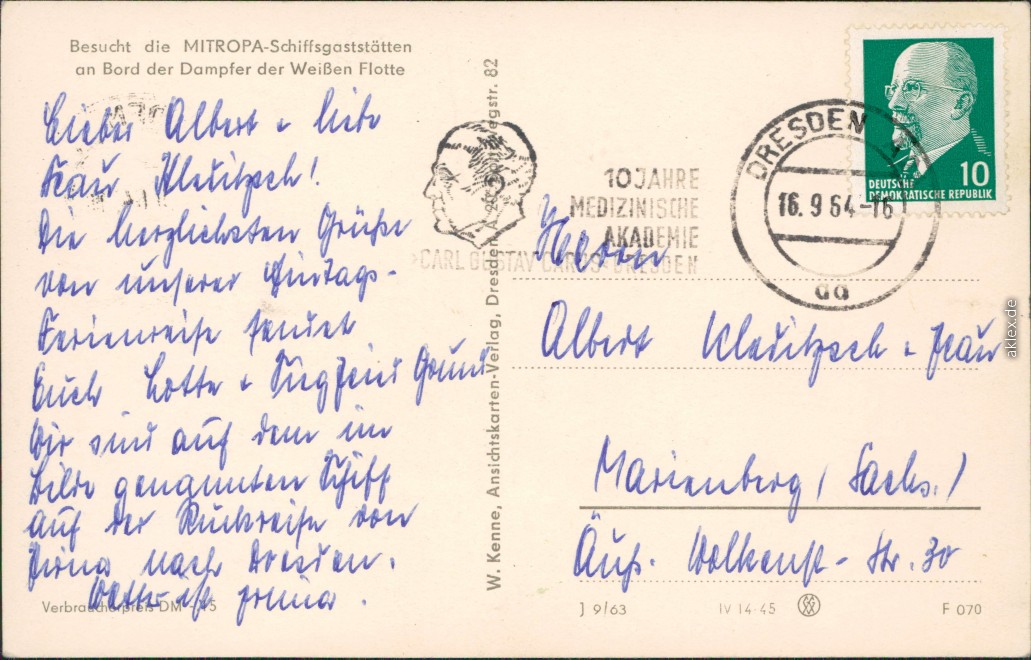 Besucht die MITROPA-Schiffsgaststätten
an Bord der Dampfer der Weißen Flotte
Lieber Albert u liebe
Frau Kladitzsch!
Die herzlichsten Grüße
von unserer Eintags-
Ferienreise sendet
Euch Lotte u Siegfried Grund
Wir sind auf dem im
Bilde genannten Schiff
auf der Rückreise von
Pirna nach Dresden.
Wetter ist prima.
Verbraucherpreis DM -,25
W. Kenne, Ansichtskarten-Verlag, Dresden A 20, 82
10 JAHRE
MEDIZINISCHE
AKADEMIE
CARL GUSTAV CARUS-DRESDEN
DRESDEN
16.9.64-16
aa
DEUTSCHE
DEMOKRATISCHE REPUBLIK
10
Herrn
Albert Kladitzsch u Frau
Marienberg / Sachs. /
Äuß. Wolkenst- Str. 30
J 9/63
IV 14-45
F 070
aklex.de